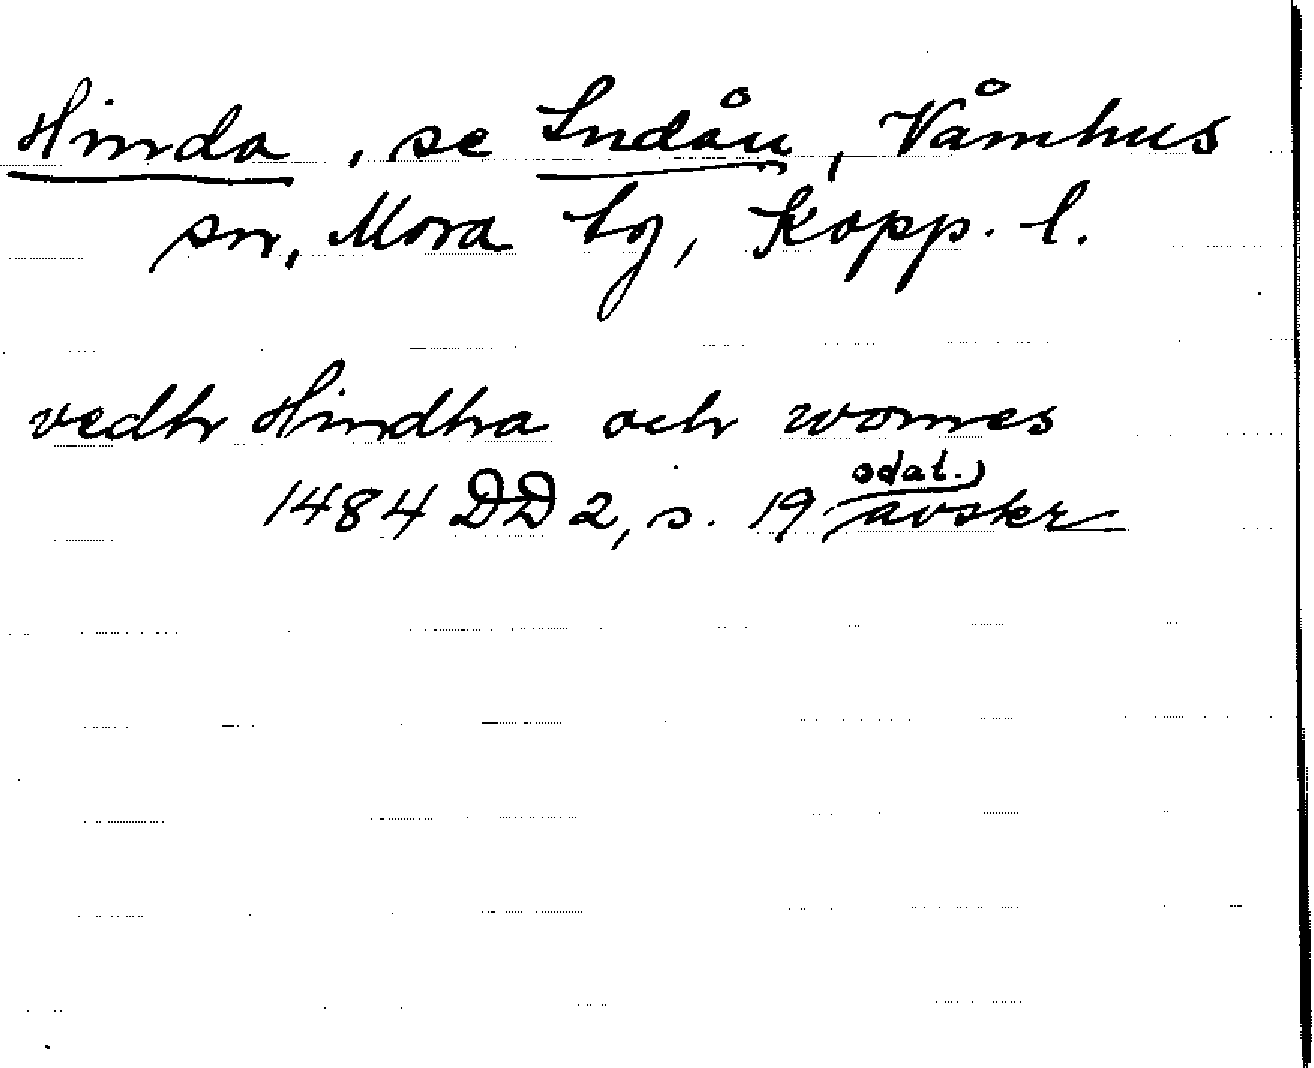 Hinda, se Indån, Våmhus
sn, Mora tg, Kopp. l.
vedh Hindha och womes
odat.)
1484 DD 2, s. 19 avskr